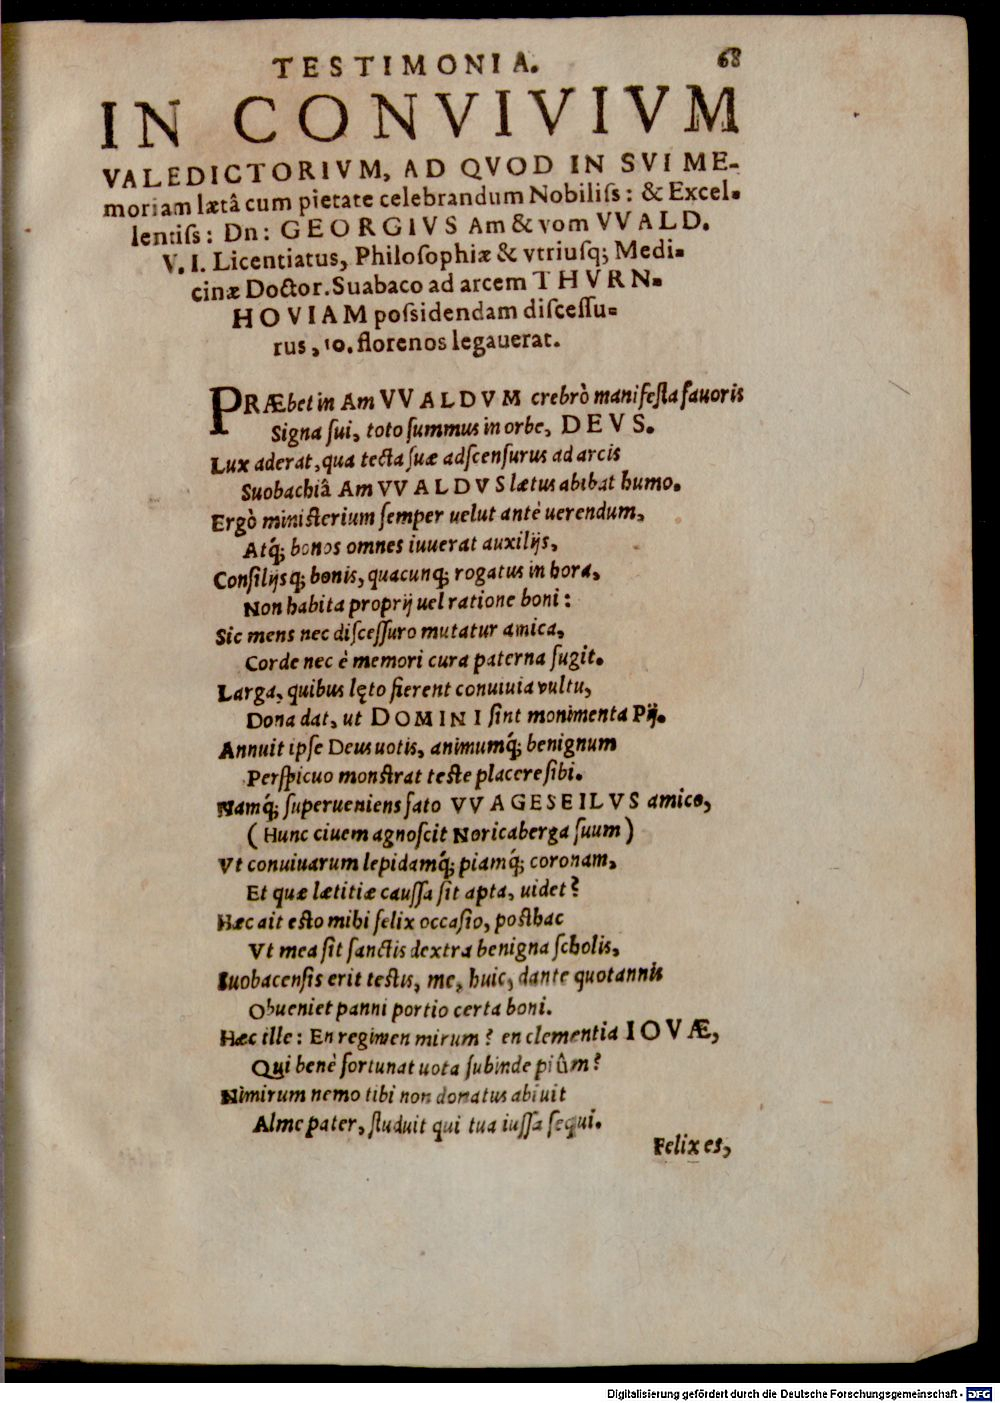 TESTIMONIA. 68
IN CONVIVIVM
VALEDICTORIVM, AD QVOD IN SVI ME-
moriam lætâ cum pietate celebrandum Nobiliſs: & Excel-
lentiſs: Dn: GEORGIVS Am & vom VVALD.
V. I. Licentiatus, Philoſophiæ & vtriuſq; Medi-
cinæ Doctor. Suabaco ad arcem THVRN-
HOVIAM poſsidendam diſceſſu-
rus, 10. florenos legauerat.
PRÆbet in Am VVALDVM crebrò manifeſta fauoris
Signa ſui, toto ſummus in orbe, DEVS.
Lux aderat, qua tecta ſuæ adſcenſurus ad arcis
Suobachiâ Am VVALDVS lætus abibat humo.
Ergò miniſterium ſemper uelut antè uerendum,
Atq́; bonos omnes iuuerat auxilijs,
Conſilijsq́; bonis, quacunq; rogatus in hora,
Non habita proprij uel ratione boni:
Sic mens nec diſceſſuro mutatur amica,
Corde nec è memori cura paterna fugit.
Larga, quibus lęto fierent conuiuia vultu,
Dona dat, ut DOMINI ſint monimenta Pij.
Annuit ipſe Deus uotis, animumq́; benignum
Perſpicuo monſtrat teſte placere ſibi.
Namq́; ſuperueniens fato VVAGESEILVS amico,
(Hunc ciuem agnoſcit Noricaberga ſuum)
Vt conuiuarum lepidamq́; piamq́; coronam,
Et quæ lætitiæ cauſſa ſit apta, uidet?
Hæc ait eſto mihi felix occaſio, poſthac
Vt mea ſit ſanctis dextra benigna ſcholis,
Suobacenſis erit teſtis, me, huic, dante quotannis
Obueniet panni portio certa boni.
Hæc ille: En regimen mirum? en clementia IOVÆ,
Qui benè fortunat uota ſubinde piûm?
Nimirum nemo tibi non donatus abiuit
Alme pater, ſtuduit qui tua iuſſa ſequi.
Felix es,
Digitalisierung gefördert durch die Deutsche Forschungsgemeinschaft - DFG